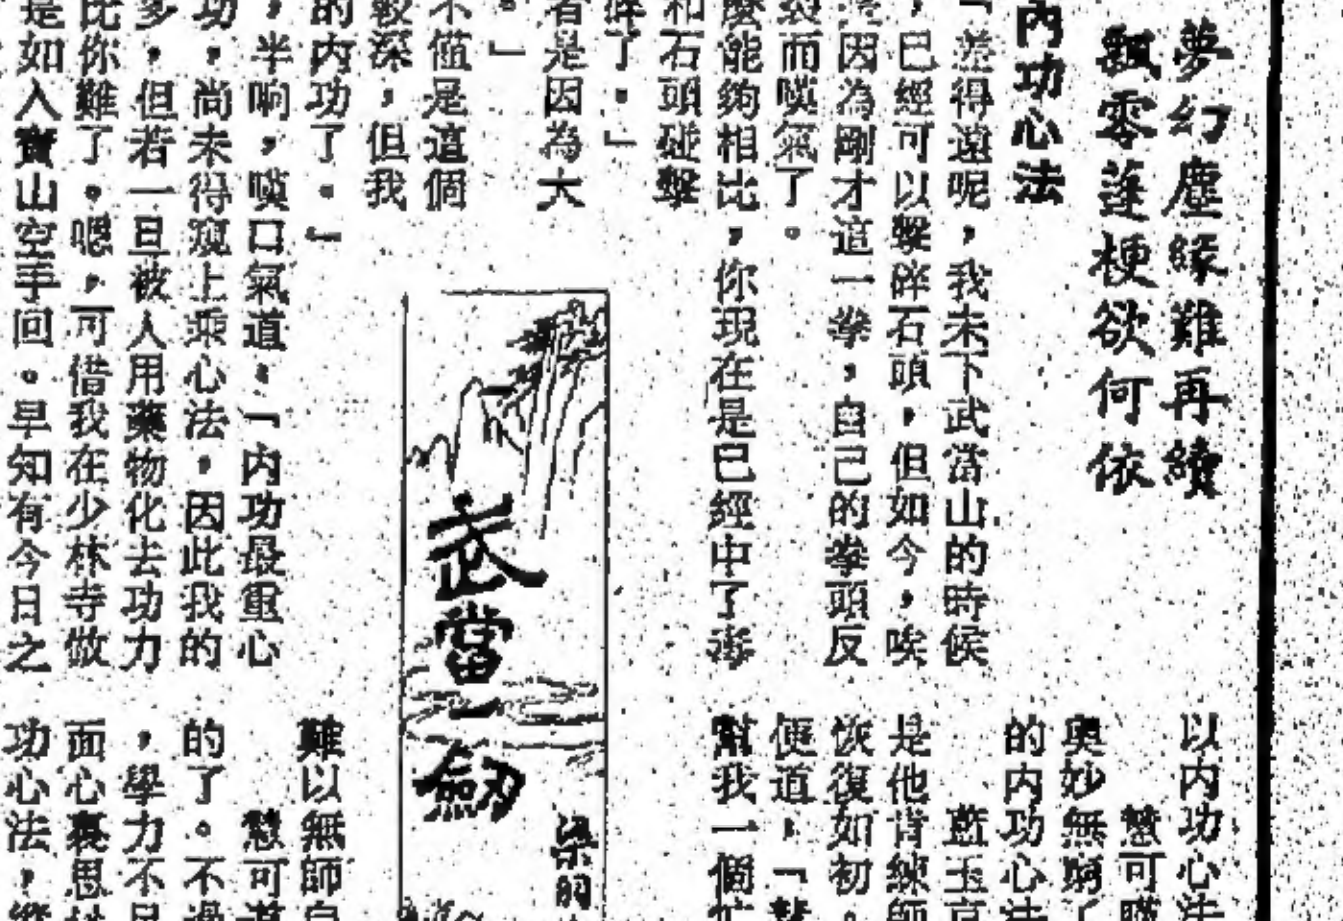 夢幻塵緣難再續
飄零蓬梗欲何依
內功心法
「差得遠呢，我未下武當山的時候
，已經可以擊碎石頭，但如今，唉
因為剛才這一拳，自己的拳頭反
裂而嘆氣了。
麼能夠相比，你現在是已經中了毒
和石頭碰擊
碎了。」
者是因為大
。」
不僅是這個
較深，但我
的內功了。」
，半晌，嘆口氣道，「內功最重心
功，尚未得窺上乘心法，因此我的
多，但若一旦被人用藥物化去功力
比你難了。嗯，可惜我在少林寺做
是如入寶山空手回。早知有今日之
武當一劍
梁羽
以內功心法
慧可
奧妙無窮了
的內功心法
藍玉京
是他肯練師
恢復如初。
便道，「
幫我一個忙
難以無師自
慧可道
的了。不過
，學力不足
面心裏思
功心法，縱